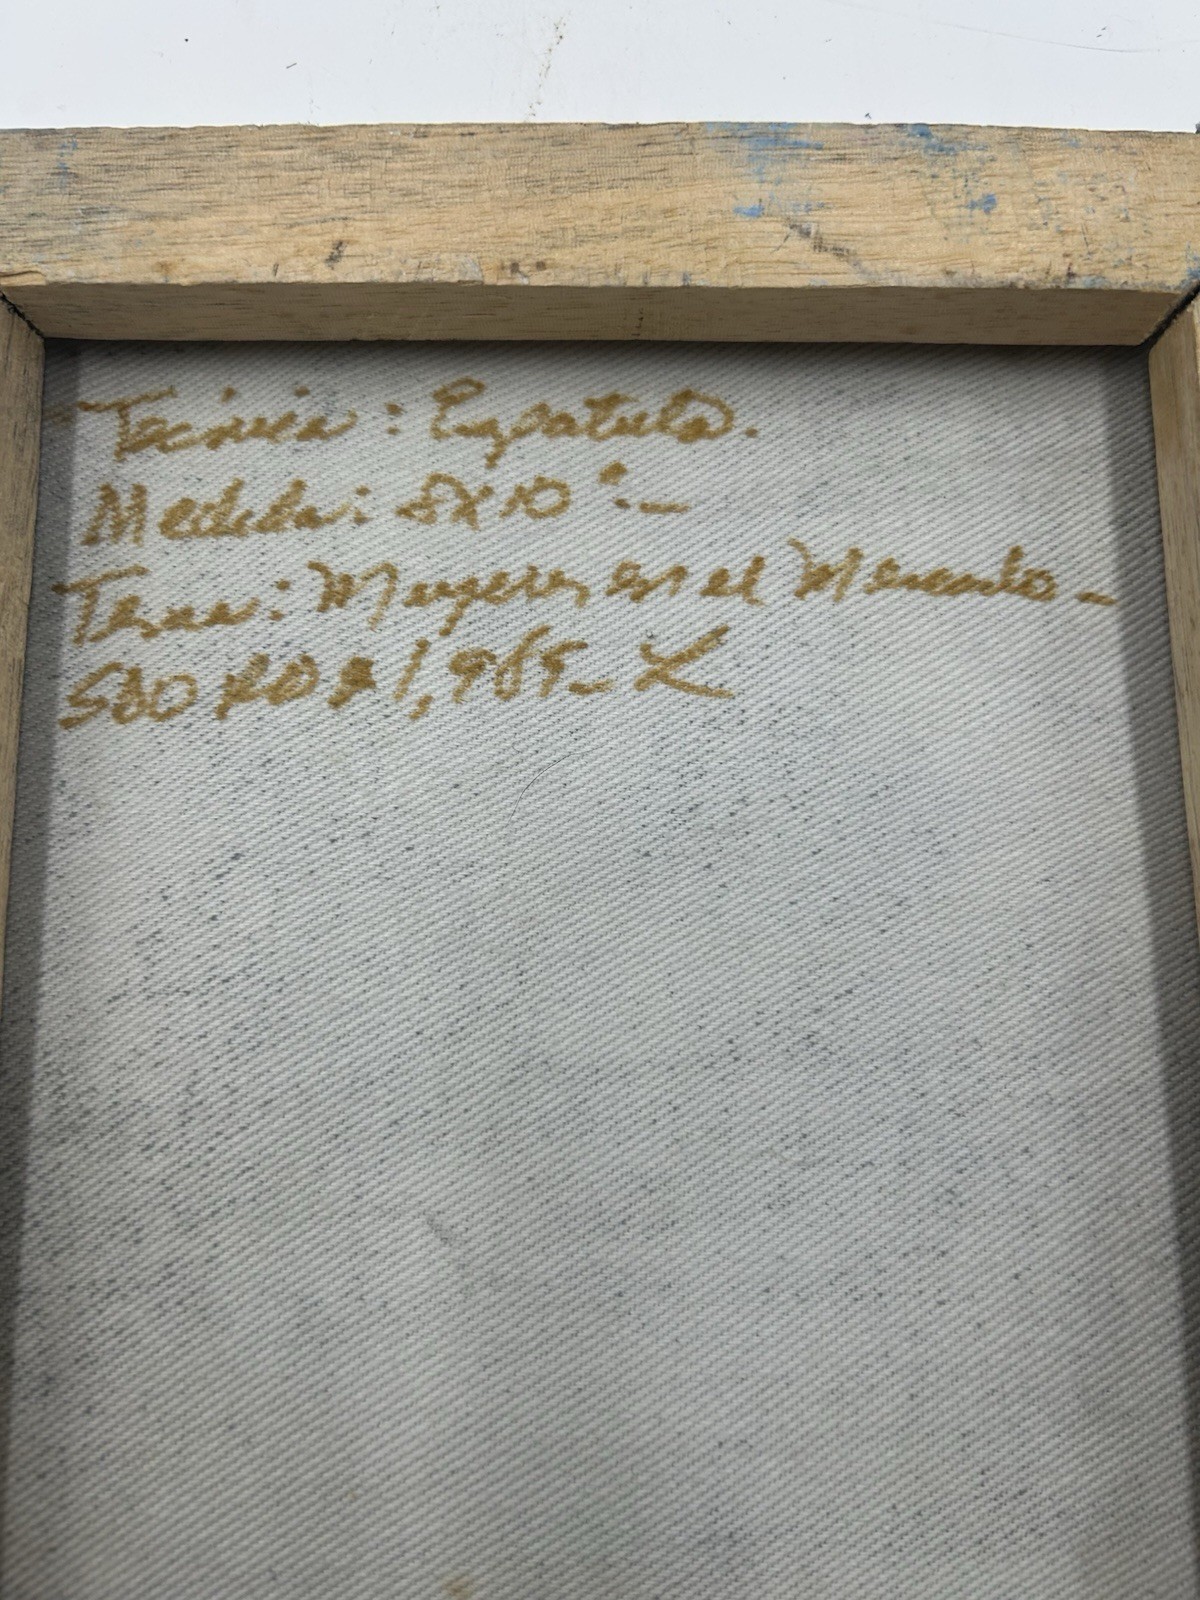 Tecnica: Espatula.
Medida: 8x10".-
Tema: Mugeres en el Mercado-
SDO RD $1,965-